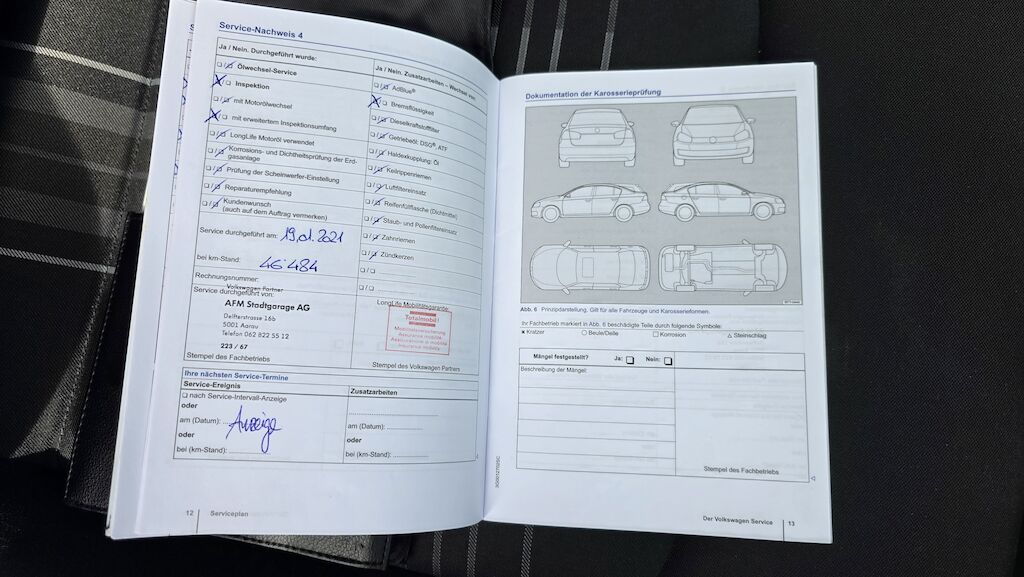 Service-Nachweis 4
Ja / Nein. Durchgeführt wurde:
Ölwechsel-Service
Inspektion
mit Motorölwechsel
mit erweitertem Inspektionsumfang
LongLife Motoröl verwendet
Korrosions- und Dichtheitsprüfung der Erd-
gasanlage
Prüfung der Scheinwerfer-Einstellung
Reparaturempfehlung
Kundenwunsch
(auch auf dem Auftrag vermerken)
Service durchgeführt am: 19.01.2021
bei km-Stand: 46'484
Rechnungsnummer:
Volkswagen Partner
Service durchgeführt von:
AFM Stadtgarage AG
Delfterstrasse 16b
5001 Aarau
Telefon 062 822 55 12
223 / 67
Stempel des Fachbetriebs
Ja / Nein. Zusatzarbeiten – Wechsel von:
AdBlue®
Bremsflüssigkeit
Dieselkraftstofffilter
Getriebeöl: DSG®, ATF
Haldexkupplung: Öl
Keilrippenriemen
Luftfiltereinsatz
Reifenfüllflasche (Dichtmittel)
Staub- und Pollenfiltereinsatz
Zahnriemen
Zündkerzen
LongLife Mobilitätsgarantie
Totalmobil!
Mobilitätsversicherung
Assurance mobilité
Assicurazione di mobilità
Insurance mobility
Stempel des Volkswagen Partners
Ihre nächsten Service-Termine
Service-Ereignis
nach Service-Intervall-Anzeige
oder
am (Datum): Anzeige
oder
bei (km-Stand):
Zusatzarbeiten
am (Datum):
oder
bei (km-Stand):
12 Serviceplan
Dokumentation der Karosserieprüfung
Abb. 6 Prinzipdarstellung. Gilt für alle Fahrzeuge und Karosserieformen.
Ihr Fachbetrieb markiert in Abb. 6 beschädigte Teile durch folgende Symbole:
× Kratzer ○ Beule/Delle □ Korrosion △ Steinschlag
Mängel festgestellt? Ja: Nein:
Beschreibung der Mängel:
Stempel des Fachbetriebs
Der Volkswagen Service 13